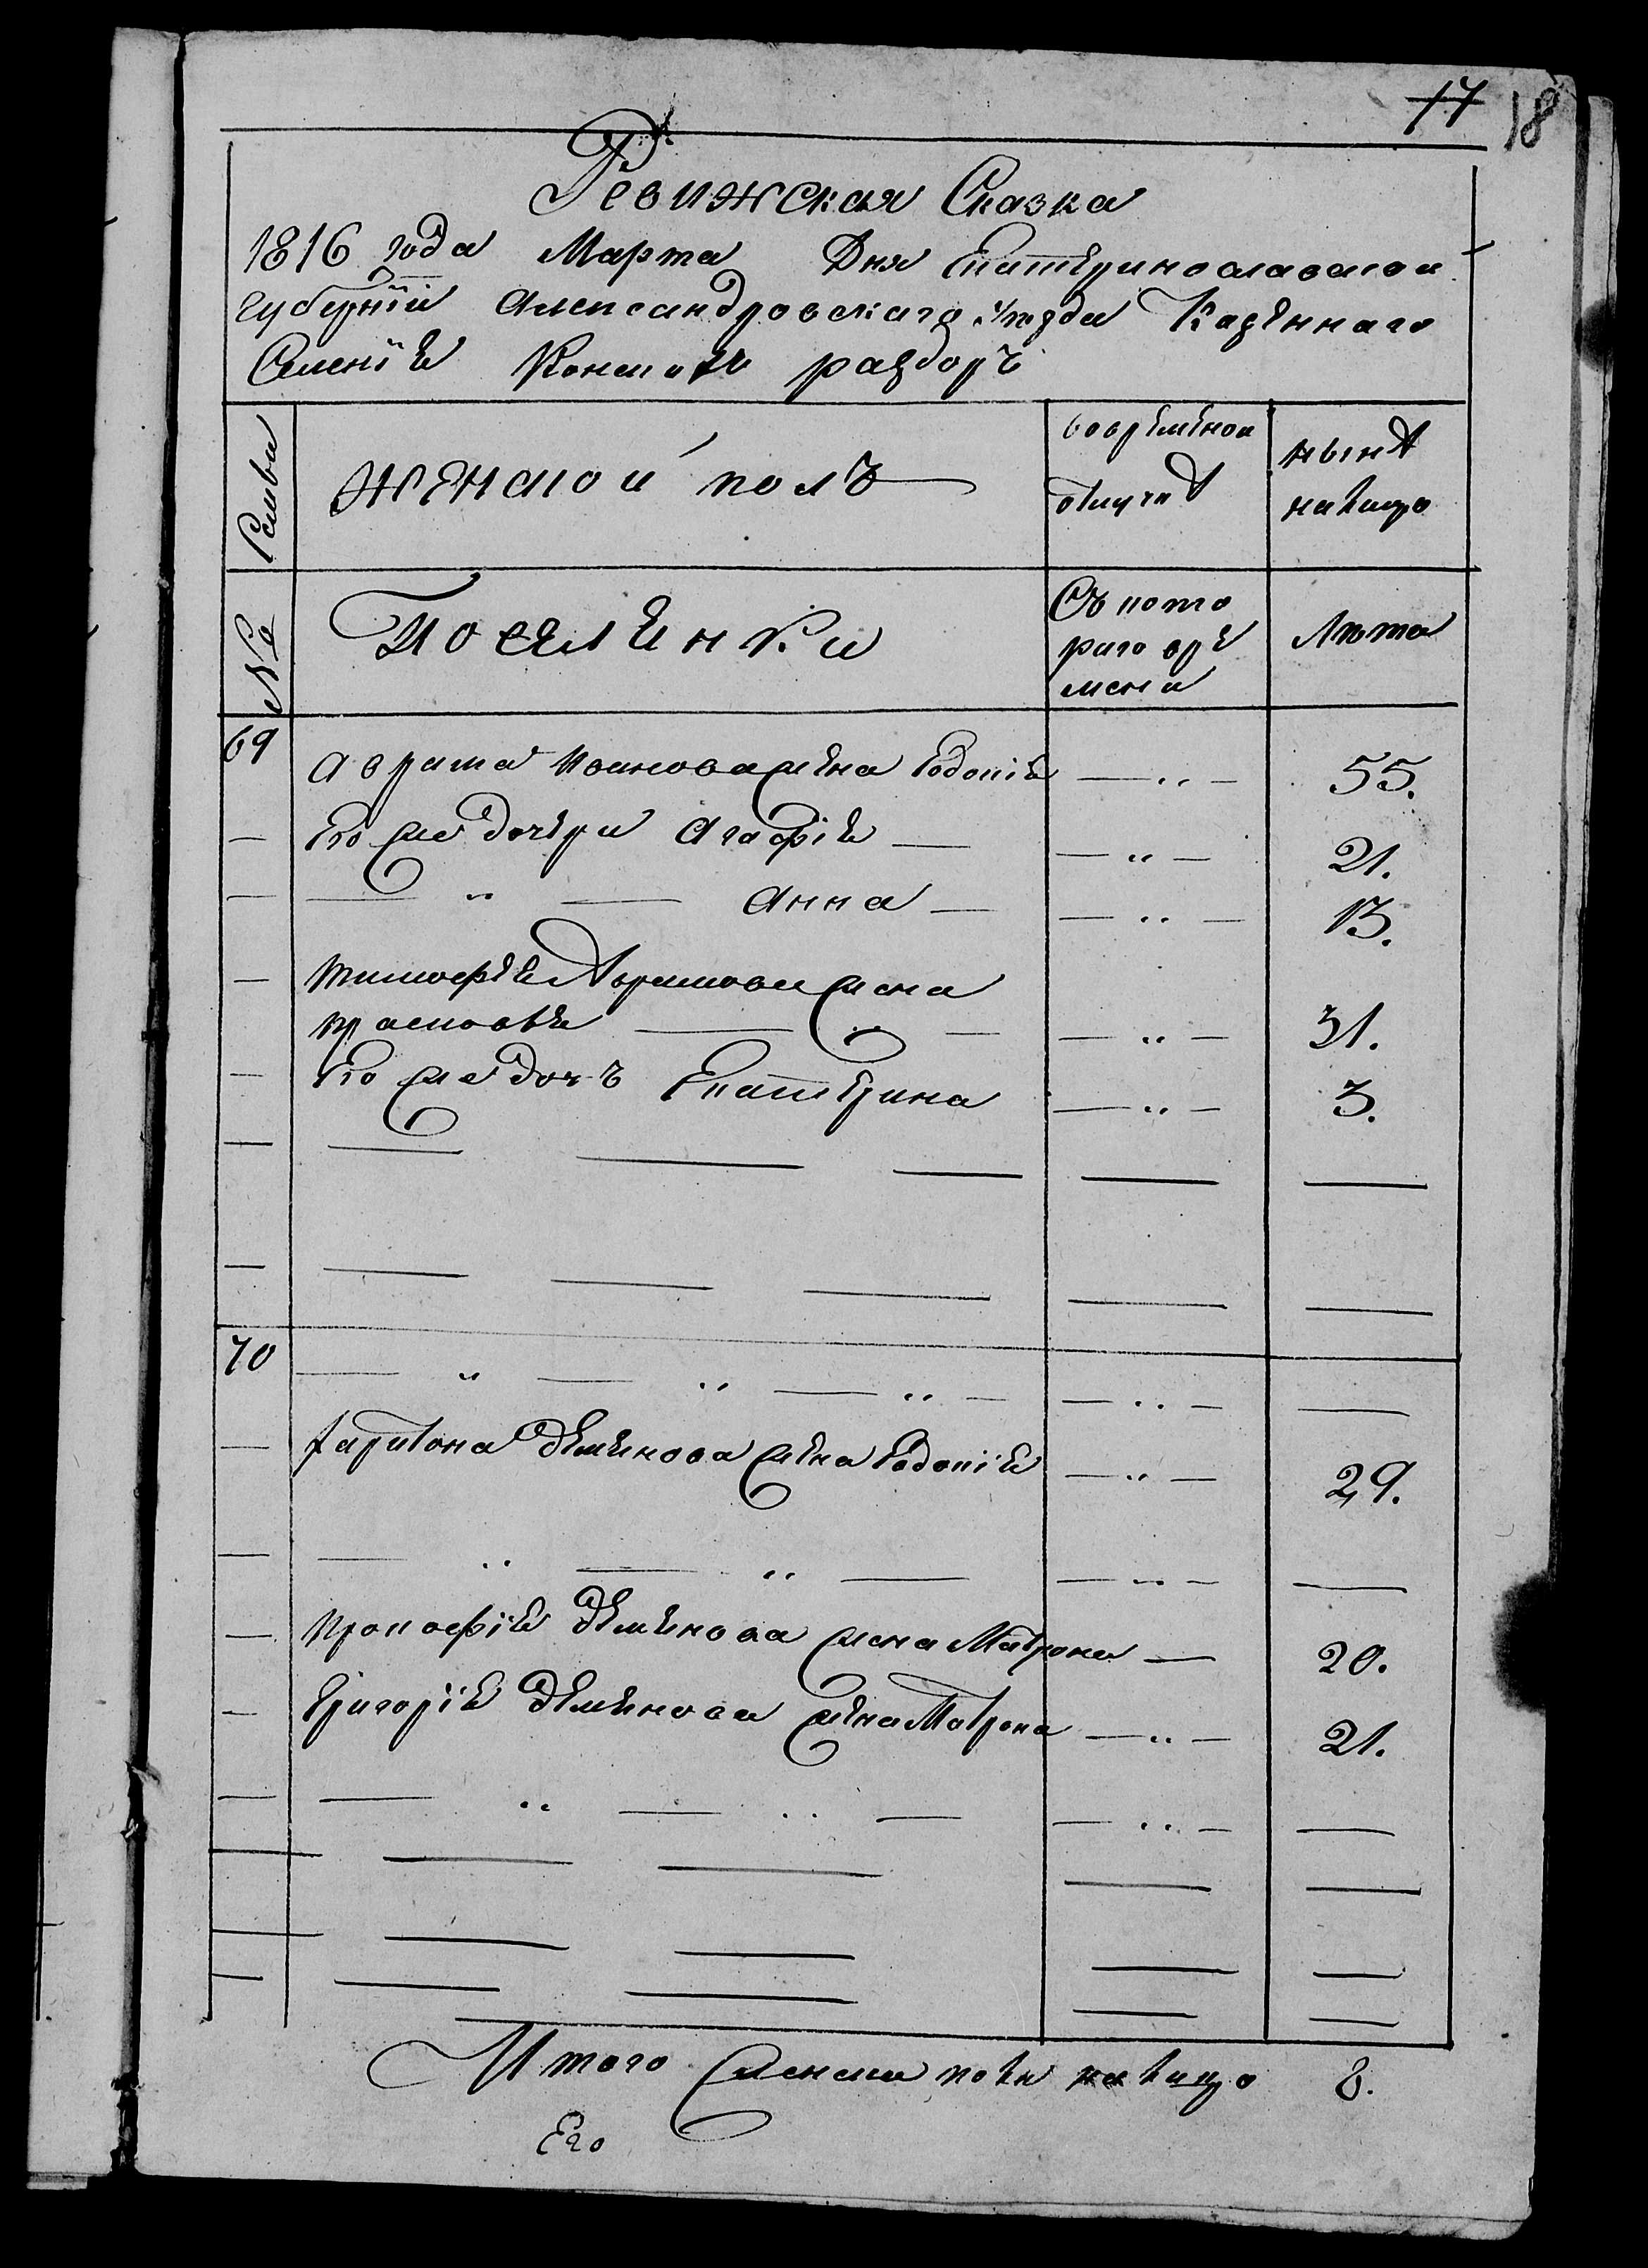 17 18
Ревижская Сказка
1816 года Марта Дня Екатеринославской
Губернїи Александровского уѣзда Казеннаго
Селенїя Конско раздоръ
Семьи
женской полъ
во временой
отлучкѣ
нынѣ
налицо
№
Поселянки
Съ кото
раго вре
мени
Лѣта
69 Аврама Иванова жена Евдокія — „ — 55.
— Его же дочери Агафія — — „ — 21.
— — „ — Анна — — „ — 13.
— Тимофея Аврамова жена
Прасковья — „ — — „ — 31.
— Его же дочь Екатерина — „ — 3.
70 — „ — „ — „ — — „ — —
— Харитона Деменова жена Евдокія — „ — 29.
— — „ — „ — — „ — —
— Прокофія Деменова жена Матрона — 20.
— Григорія Деменова жена Матрона — „ — 21.
— — „ — „ — — „ — —
Итого женска пола налицо 8.
Его